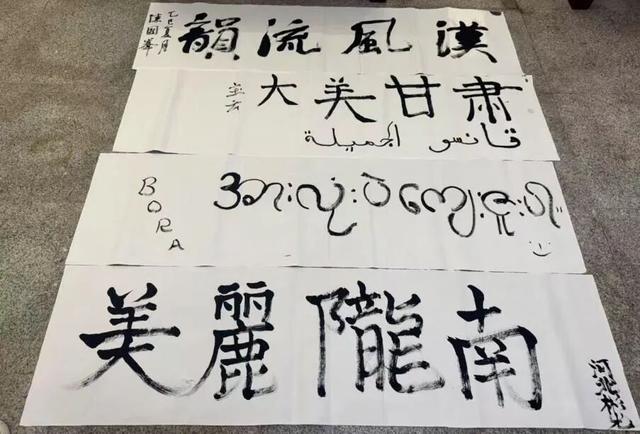 漢風流韻
乙巳夏月
陳國峯
大美甘肅
قانسو الجميلة
BORA
အားလုံးပဲကျေးဇူးပါ။
美麗隴南
河北